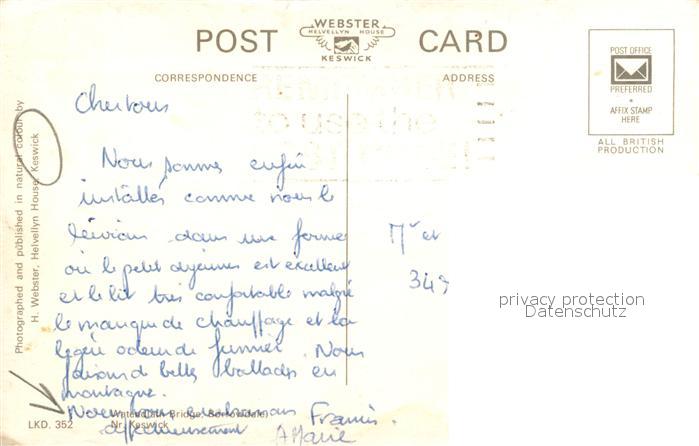 WEBSTER
HELVELLYN HOUSE
KESWICK
POST CARD
CORRESPONDENCE
ADDRESS
POST OFFICE
PREFERRED
AFFIX STAMP
HERE
ALL BRITISH
PRODUCTION
Photographed and published in natural colour by
H. Webster, Helvellyn House, Keswick
Chers tous
Nous sommes enfin
installés comme nous le
dans une ferme
où le petit dejeuner est excellent
et le lit très confortable malgré
le manque de chauffage et la
legère odeur de fumier. Nous
faisons de belles ballades en
montagne.
Nous vous embrassons
affectueusement
Francis.
A Marie
Mr et
349
LKD. 352
Watendlath Bridge, Borrowdale,
Nr. Keswick
privacy protection
Datenschutz